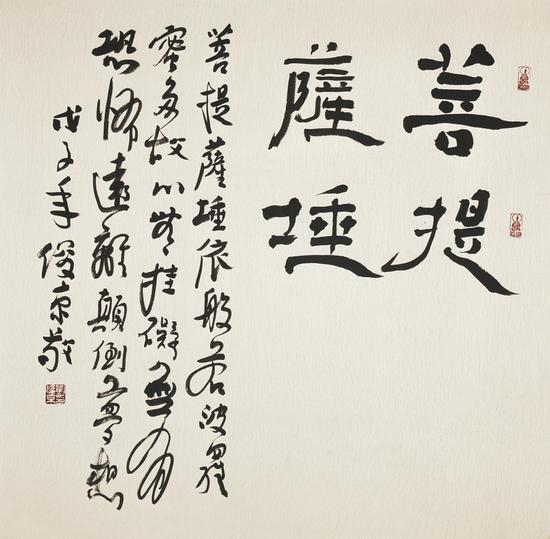 菩提
薩埵
菩提薩埵依般若波羅
蜜多故心無挂礙無有
恐怖遠離顛倒夢想
戊子年俊京敬